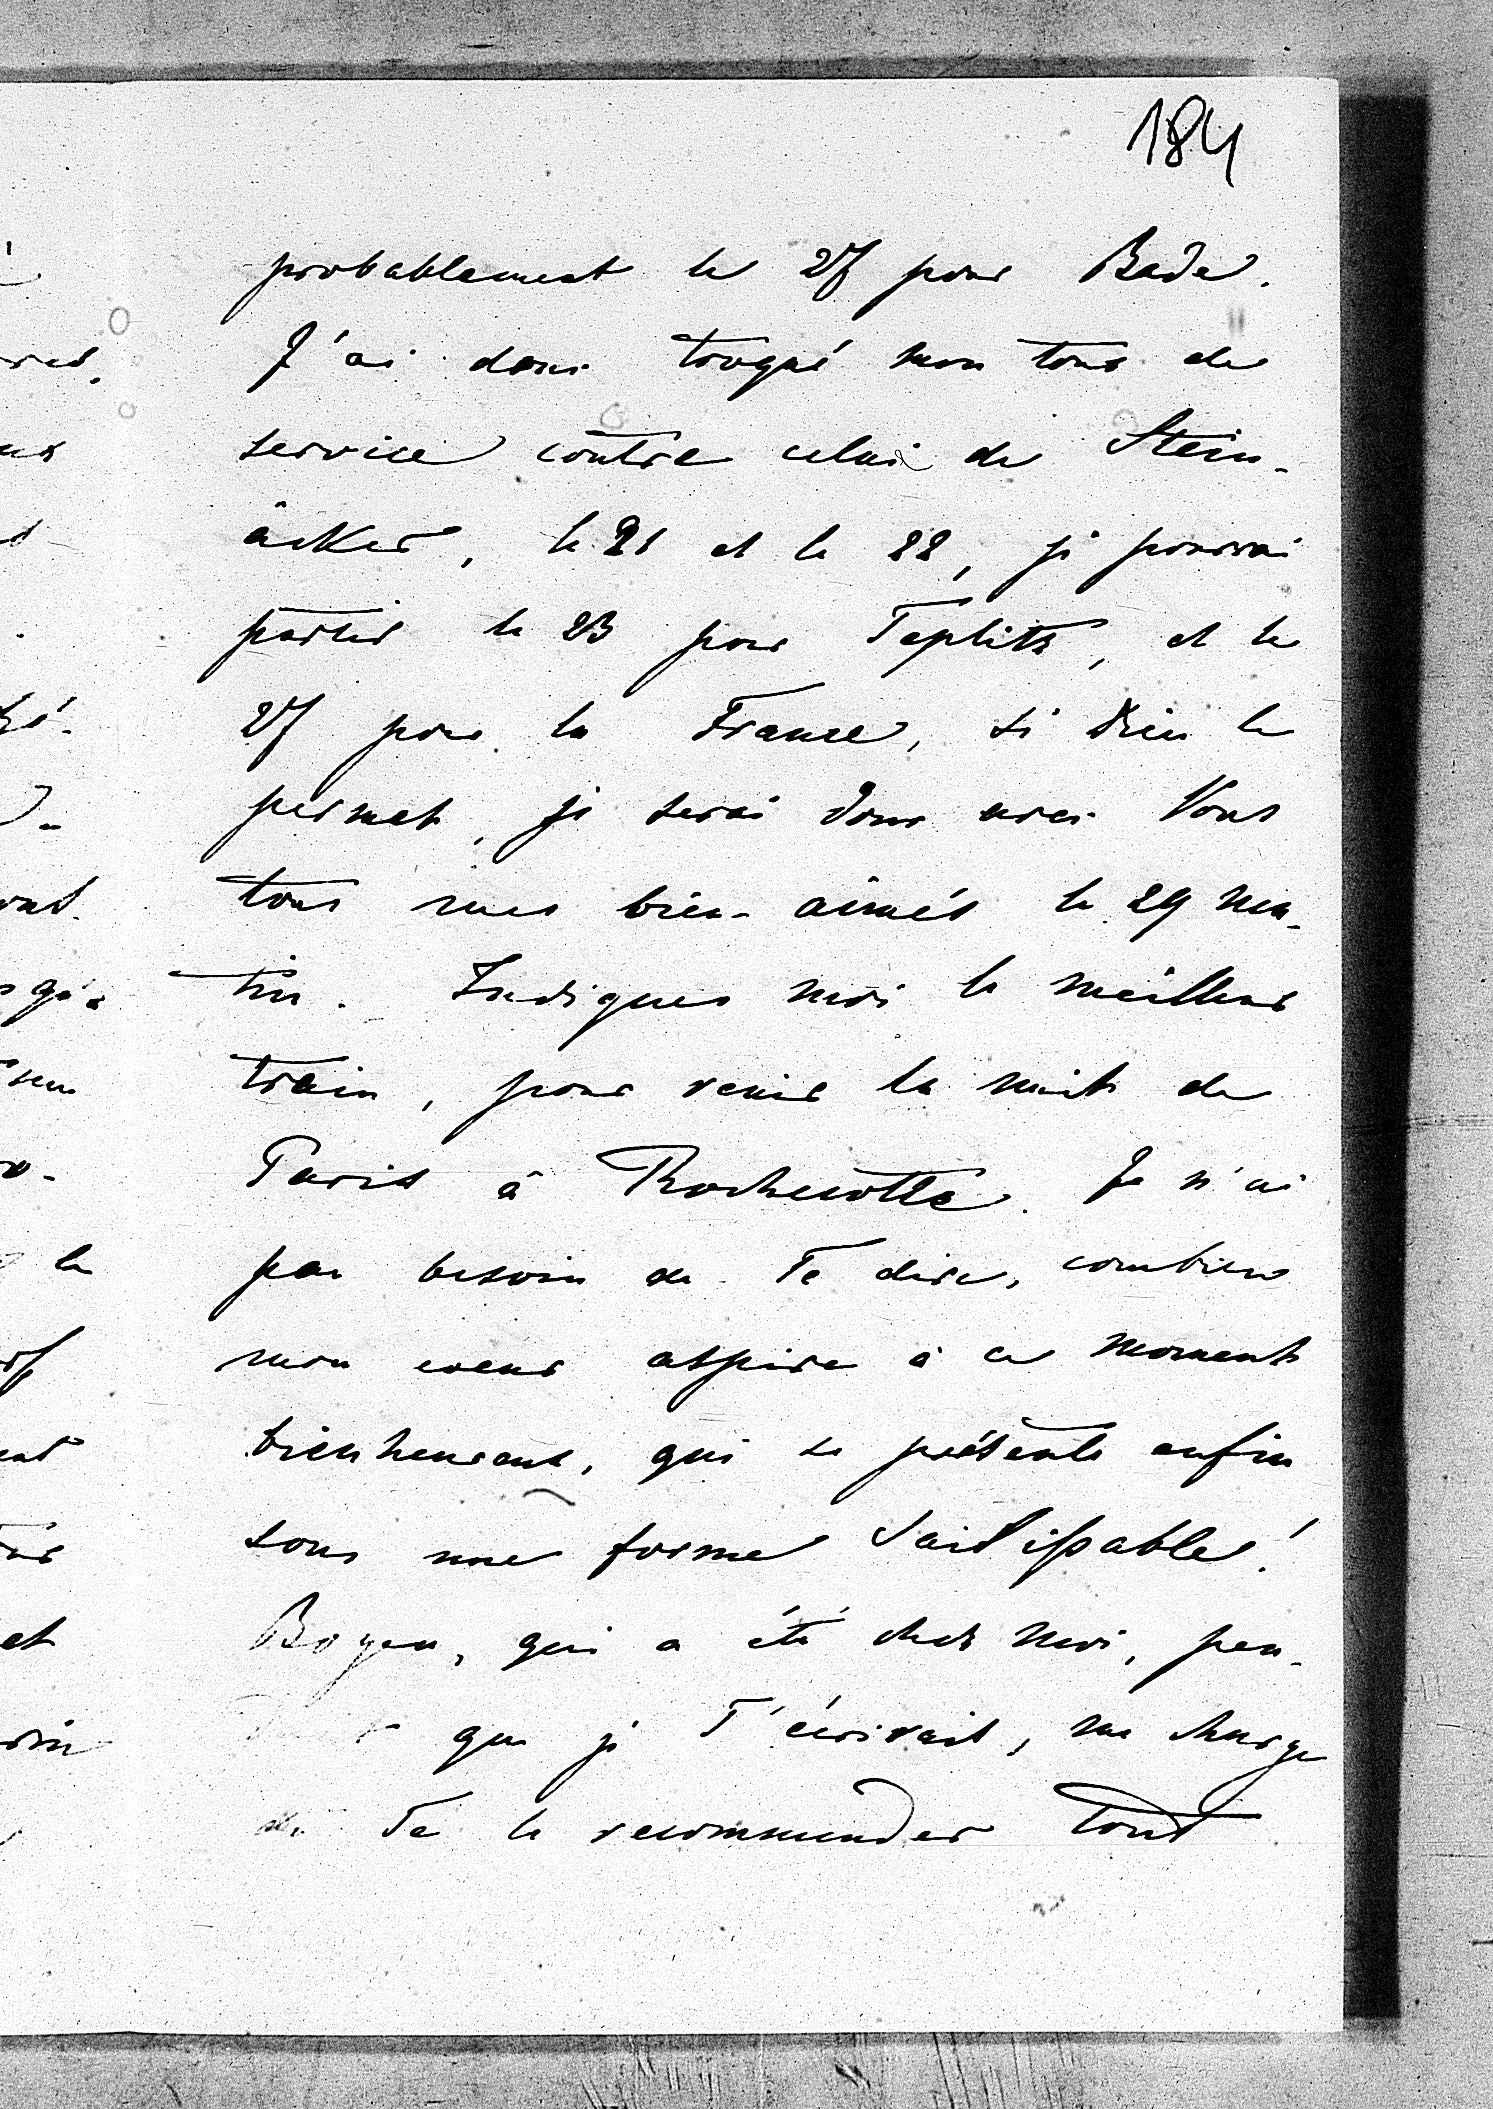 184
probablement le 27 pour Bade.
J'ai donc troqué mon tour de
service contre celui de Stein-
äcker, le 21 et le 22, je pourrai
partir le 23 pour Teplitz, et le
27 pour la France, si Dieu le
permet, je serai donc avec Vous
tous mes bien-aimés le 29 ma-
tin. Indiques moi le meilleur
train, pour venir la nuit de
Paris à Rochecotte. Je n'ai
pas besoin de Te dire, combien
mon coeur aspire à ce moment
bienheureux, qui se présente enfin
sous une forme saisissable!
Boyen, qui a été chez moi, pen-
dant que je T'écrivais, me charge
de Te le recommender tout